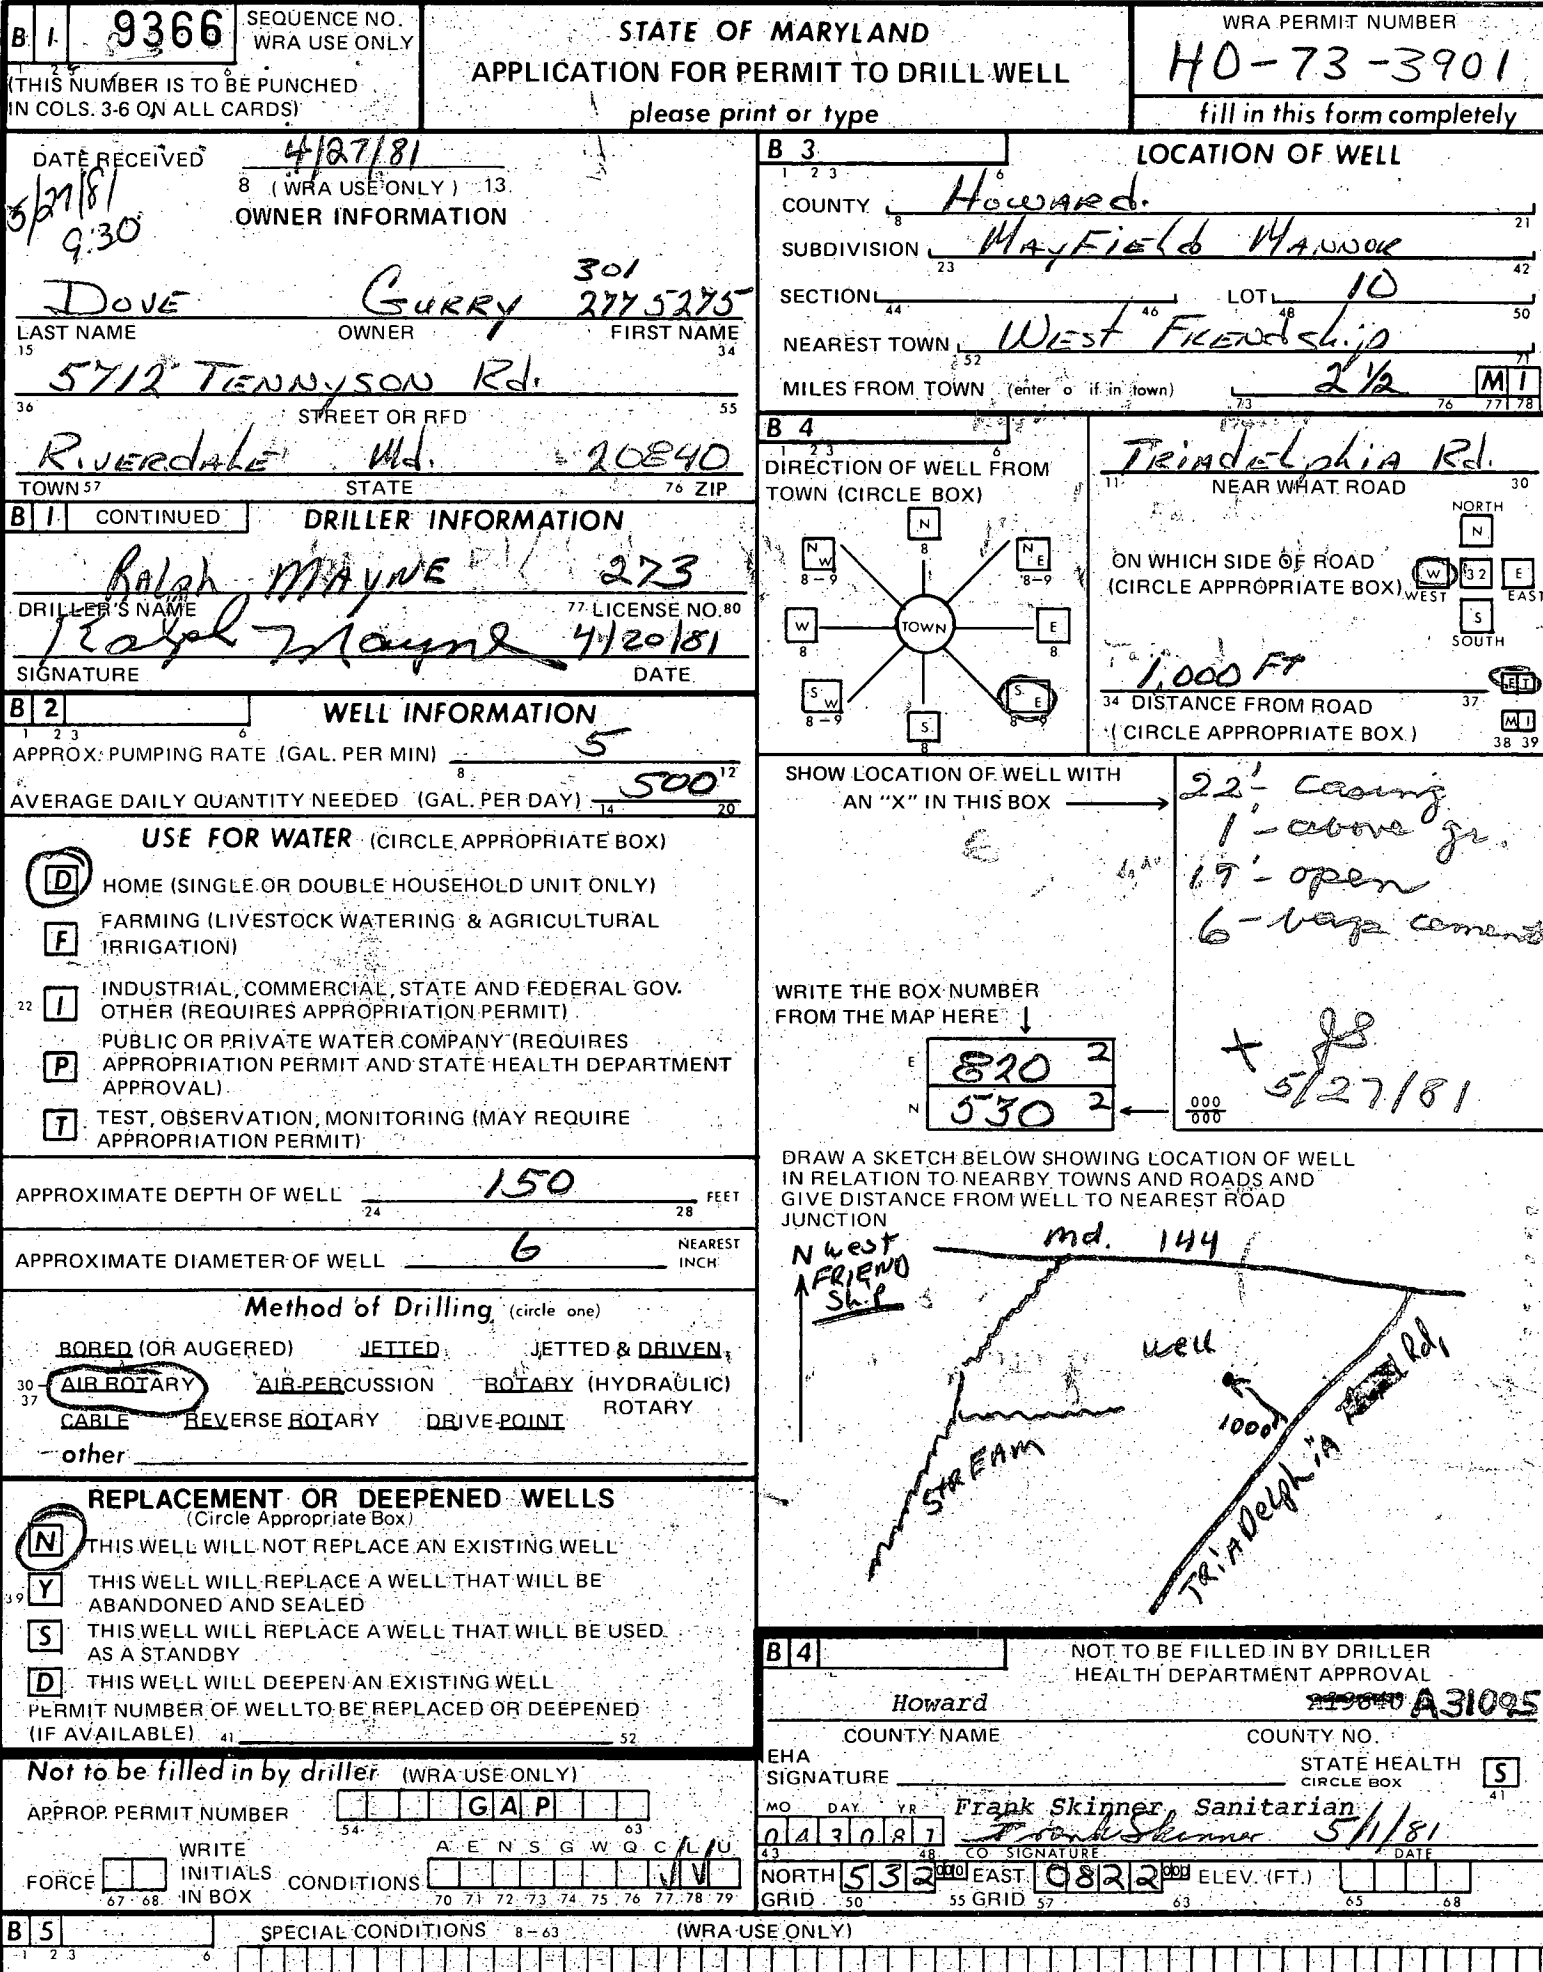 B 1 9366 SEQUENCE NO.
WRA USE ONLY
(THIS NUMBER IS TO BE PUNCHED
IN COLS. 3-6 ON ALL CARDS)
STATE OF MARYLAND
APPLICATION FOR PERMIT TO DRILL WELL
please print or type
WRA PERMIT NUMBER
HO-73-3901
fill in this form completely
DATE RECEIVED 4/27/81
8 (WRA USE ONLY) 13
5/27/81
9:30
OWNER INFORMATION
301
DOVE GURRY 2775275
LAST NAME OWNER FIRST NAME
15 34
5712 TENNYSON Rd.
36 STREET OR RFD 55
RIVERDALE Md. 20840
TOWN 57 STATE 76 ZIP
B 1 CONTINUED DRILLER INFORMATION
Ralph MAYNE 273
DRILLER'S NAME 77 LICENSE NO. 80
Ralph Mayne 4/20/81
SIGNATURE DATE
B 2 WELL INFORMATION
1 2 3 6
APPROX. PUMPING RATE (GAL. PER MIN) 5
8 12
AVERAGE DAILY QUANTITY NEEDED (GAL. PER DAY) 500
14 20
USE FOR WATER (CIRCLE APPROPRIATE BOX)
D HOME (SINGLE OR DOUBLE HOUSEHOLD UNIT ONLY)
F FARMING (LIVESTOCK WATERING & AGRICULTURAL
IRRIGATION)
22 I INDUSTRIAL, COMMERCIAL, STATE AND FEDERAL GOV.
OTHER (REQUIRES APPROPRIATION PERMIT)
P PUBLIC OR PRIVATE WATER COMPANY (REQUIRES
APPROPRIATION PERMIT AND STATE HEALTH DEPARTMENT
APPROVAL)
T TEST, OBSERVATION, MONITORING (MAY REQUIRE
APPROPRIATION PERMIT)
APPROXIMATE DEPTH OF WELL 150 FEET
24 28
APPROXIMATE DIAMETER OF WELL 6 NEAREST
INCH
Method of Drilling (circle one)
BORED (OR AUGERED) JETTED JETTED & DRIVEN
30 - AIR ROTARY AIR-PERCUSSION ROTARY (HYDRAULIC)
37 ROTARY
CABLE REVERSE ROTARY DRIVE-POINT
other
REPLACEMENT OR DEEPENED WELLS
(Circle Appropriate Box)
N THIS WELL WILL NOT REPLACE AN EXISTING WELL
39 Y THIS WELL WILL REPLACE A WELL THAT WILL BE
ABANDONED AND SEALED
S THIS WELL WILL REPLACE A WELL THAT WILL BE USED
AS A STANDBY
D THIS WELL WILL DEEPEN AN EXISTING WELL
PERMIT NUMBER OF WELL TO BE REPLACED OR DEEPENED
(IF AVAILABLE) 41 52
Not to be filled in by driller (WRA USE ONLY)
APPROP. PERMIT NUMBER G A P
54 63
FORCE WRITE INITIALS IN BOX CONDITIONS A E N S G W Q C L U
67 68 70 71 72 73 74 75 76 77 78 79
B 3 LOCATION OF WELL
1 2 3 6
COUNTY Howard.
8 21
SUBDIVISION MAYFIELD MANNOR
23 42
SECTION LOT 10
44 46 48 50
NEAREST TOWN WEST FRIENDShip
52 71
MILES FROM TOWN (enter o if in town) 2 1/2 M I
73 76 77 78
B 4
1 2 3 6
DIRECTION OF WELL FROM
TOWN (CIRCLE BOX)
N
8
N W N E
8-9 8-9
W TOWN E
8 8
S W S E
8-9 8-9
S
8
TRIAdELphiA Rd.
11 NEAR WHAT ROAD 30
NORTH
N
ON WHICH SIDE OF ROAD
(CIRCLE APPROPRIATE BOX)
W 32 E
WEST EAST
S
SOUTH
1,000 FT
34 DISTANCE FROM ROAD 37 F T
(CIRCLE APPROPRIATE BOX) M I
38 39
SHOW LOCATION OF WELL WITH
AN "X" IN THIS BOX
22' - casing
1' - above gr.
19' - open
6 - bags cement
WRITE THE BOX NUMBER
FROM THE MAP HERE
E 820 2
N 530 2
000
000
+ JS
5/27/81
DRAW A SKETCH BELOW SHOWING LOCATION OF WELL
IN RELATION TO NEARBY TOWNS AND ROADS AND
GIVE DISTANCE FROM WELL TO NEAREST ROAD
JUNCTION
N West
FRIEND
Ship
md. 144
well
1000
STREAM
TRIADelphiA Rd.
B 4 NOT TO BE FILLED IN BY DRILLER
HEALTH DEPARTMENT APPROVAL
Howard A31095
COUNTY NAME COUNTY NO.
EHA
SIGNATURE STATE HEALTH
CIRCLE BOX S
41
MO DAY YR Frank Skinner, Sanitarian
043081 Frank Skinner 5/1/81
43 48 CO SIGNATURE DATE
NORTH 532 000 EAST 0822 000 ELEV. (FT.)
GRID 50 55 GRID 57 63 65 68
B 5 SPECIAL CONDITIONS 8-63 (WRA USE ONLY)
1 2 3 6